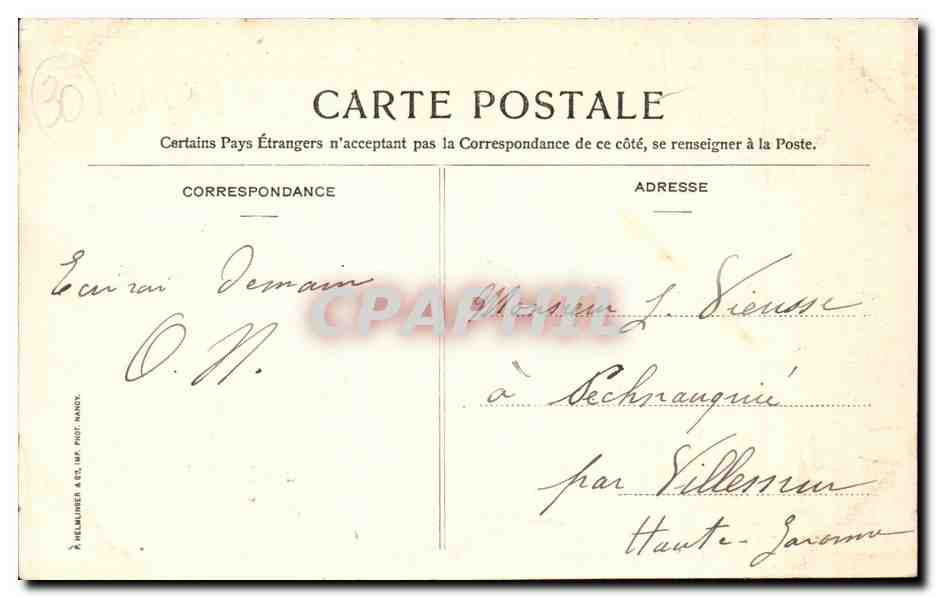 30
CARTE POSTALE
Certains Pays Étrangers n'acceptant pas la Correspondance de ce côté, se renseigner à la Poste.
CORRESPONDANCE
Ecrirai Demain
O. N.
P. HELMLINGER & Co, IMP. PHOT. NANCY.
ADRESSE
Monsieur J. Vieusse
à Pechnauquié
par Villemur
Haute-Garonne
CPAPHIL